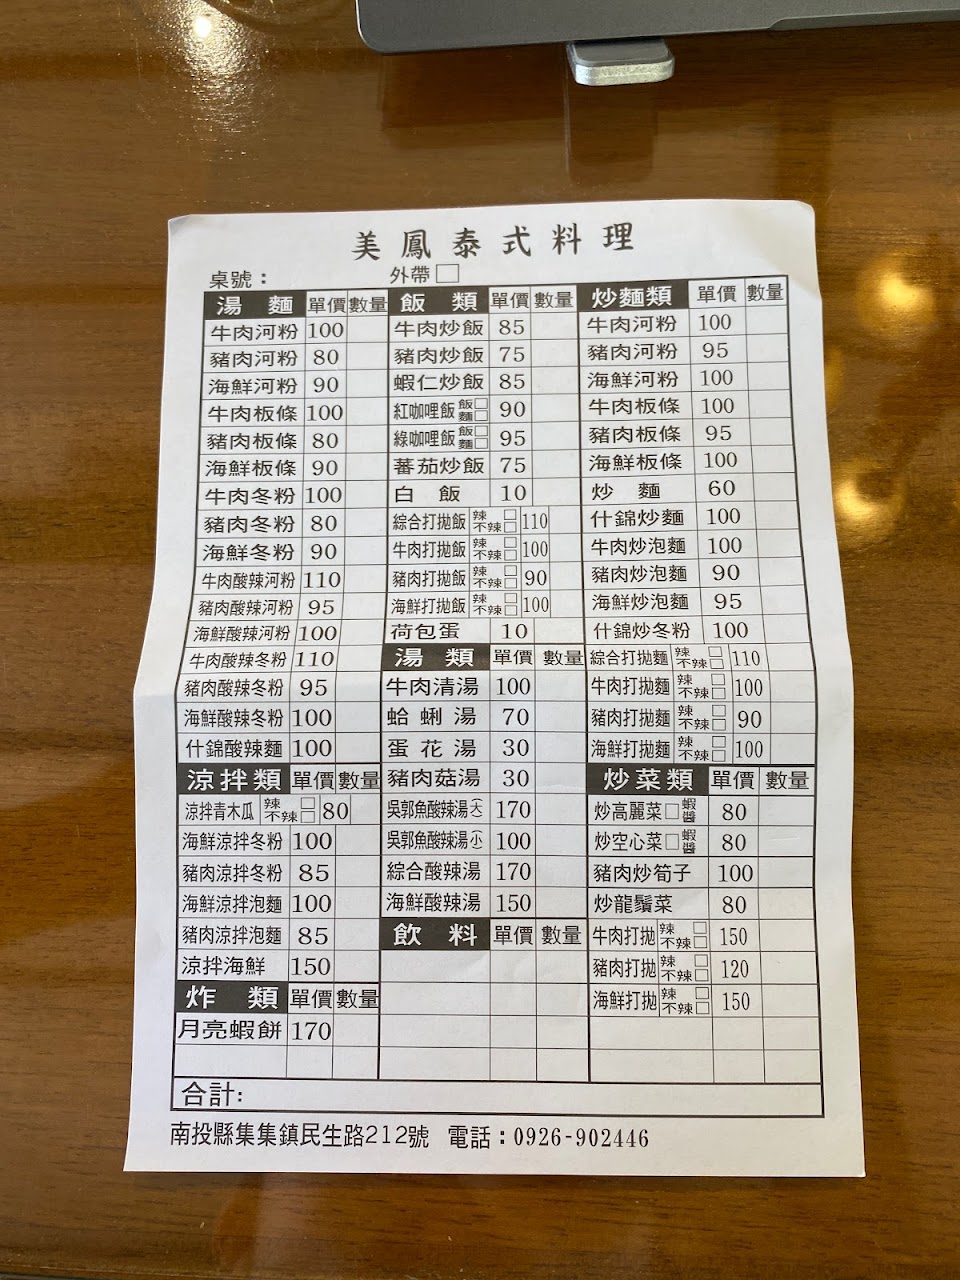 美鳳泰式料理
桌號：
外帶□
湯麵 單價 數量
牛肉河粉 100
豬肉河粉 80
海鮮河粉 90
牛肉板條 100
豬肉板條 80
海鮮板條 90
牛肉冬粉 100
豬肉冬粉 80
海鮮冬粉 90
牛肉酸辣河粉 110
豬肉酸辣河粉 95
海鮮酸辣河粉 100
牛肉酸辣冬粉 110
豬肉酸辣冬粉 95
海鮮酸辣冬粉 100
什錦酸辣麵 100
涼拌類 單價 數量
涼拌青木瓜 辣□ 不辣□ 80
海鮮涼拌冬粉 100
豬肉涼拌冬粉 85
海鮮涼拌泡麵 100
豬肉涼拌泡麵 85
涼拌海鮮 150
炸類 單價 數量
月亮蝦餅 170
飯類 單價 數量
牛肉炒飯 85
豬肉炒飯 75
蝦仁炒飯 85
紅咖哩飯 飯□ 麵□ 90
綠咖哩飯 飯□ 麵□ 95
蕃茄炒飯 75
白飯 10
綜合打拋飯 辣□ 不辣□ 110
牛肉打拋飯 辣□ 不辣□ 100
豬肉打拋飯 辣□ 不辣□ 90
海鮮打拋飯 辣□ 不辣□ 100
荷包蛋 10
湯類 單價 數量
牛肉清湯 100
蛤蜊湯 70
蛋花湯 30
豬肉菇湯 30
吳郭魚酸辣湯(大) 170
吳郭魚酸辣湯(小) 100
綜合酸辣湯 170
海鮮酸辣湯 150
飲料 單價 數量
炒麵類 單價 數量
牛肉河粉 100
豬肉河粉 95
海鮮河粉 100
牛肉板條 100
豬肉板條 95
海鮮板條 100
炒麵 60
什錦炒麵 100
牛肉炒泡麵 100
豬肉炒泡麵 90
海鮮炒泡麵 95
什錦炒冬粉 100
綜合打拋麵 辣□ 不辣□ 110
牛肉打拋麵 辣□ 不辣□ 100
豬肉打拋麵 辣□ 不辣□ 90
海鮮打拋麵 辣□ 不辣□ 100
炒菜類 單價 數量
炒高麗菜□蝦醬 80
炒空心菜□蝦醬 80
豬肉炒筍子 100
炒龍鬚菜 80
牛肉打拋 辣□ 不辣□ 150
豬肉打拋 辣□ 不辣□ 120
海鮮打拋 辣□ 不辣□ 150
合計:
南投縣集集鎮民生路212號 電話：0926-902446